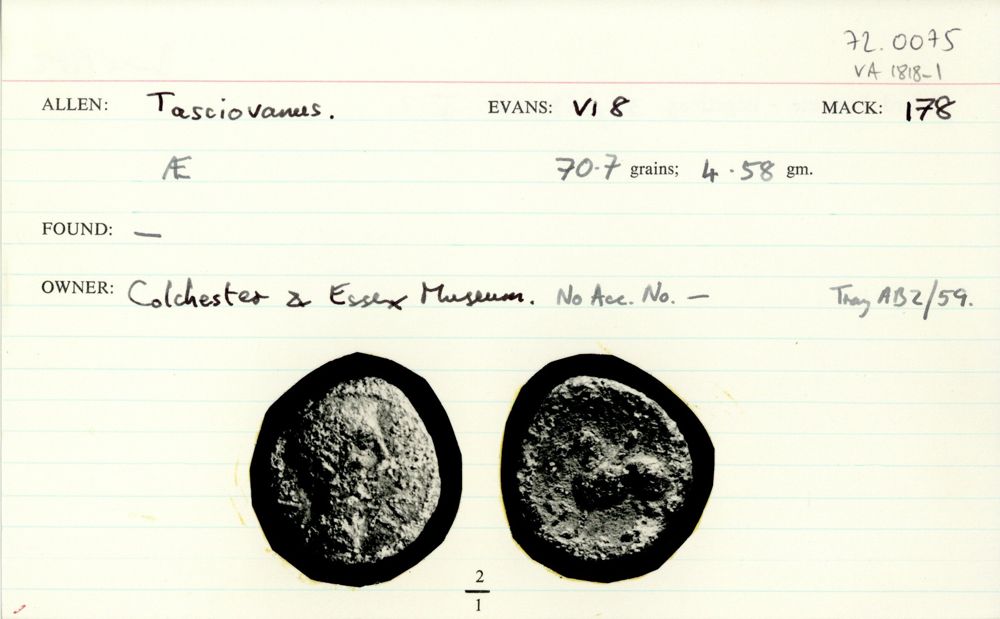 72.0075
VA 1818-1
ALLEN: Tasciovanus. EVANS: VI 8 MACK: 178
Æ 70.7 grains; 4.58 gm.
FOUND: —
OWNER: Colchester & Essex Museum. No Acc. No. — Tray AB2/59.
2
1